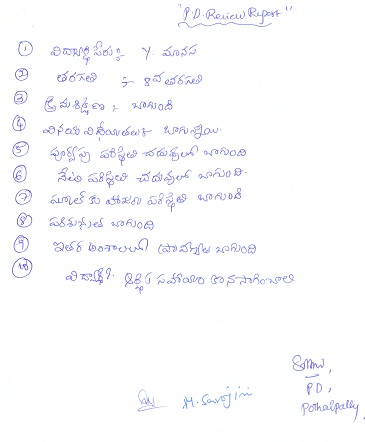 "P.D. Review Report"
① విద్యార్థి పేరు :- Y. మానస
② తరగతి :- 8వ తరగతి
③ క్రమశిక్షణ :- బాగుంది
④ వినయ విధేయతలు బాగున్నాయి.
⑤ పూర్వపు పరిస్థితి చదువులో బాగుంది
⑥ నేటి పరిస్థితి చదువులో బాగుంది.
⑦ స్కూల్ కు హాజరు పరిస్థితి బాగుంది
⑧ పరిశుభ్రత బాగుంది
⑨ ఇతర అంశాలలో ప్రావీణ్యత బాగుంది
⑩ విద్యార్థికి ఆర్థిక సహాయం కొనసాగించాలి
M. Sarojini
P D,
Pothalpally